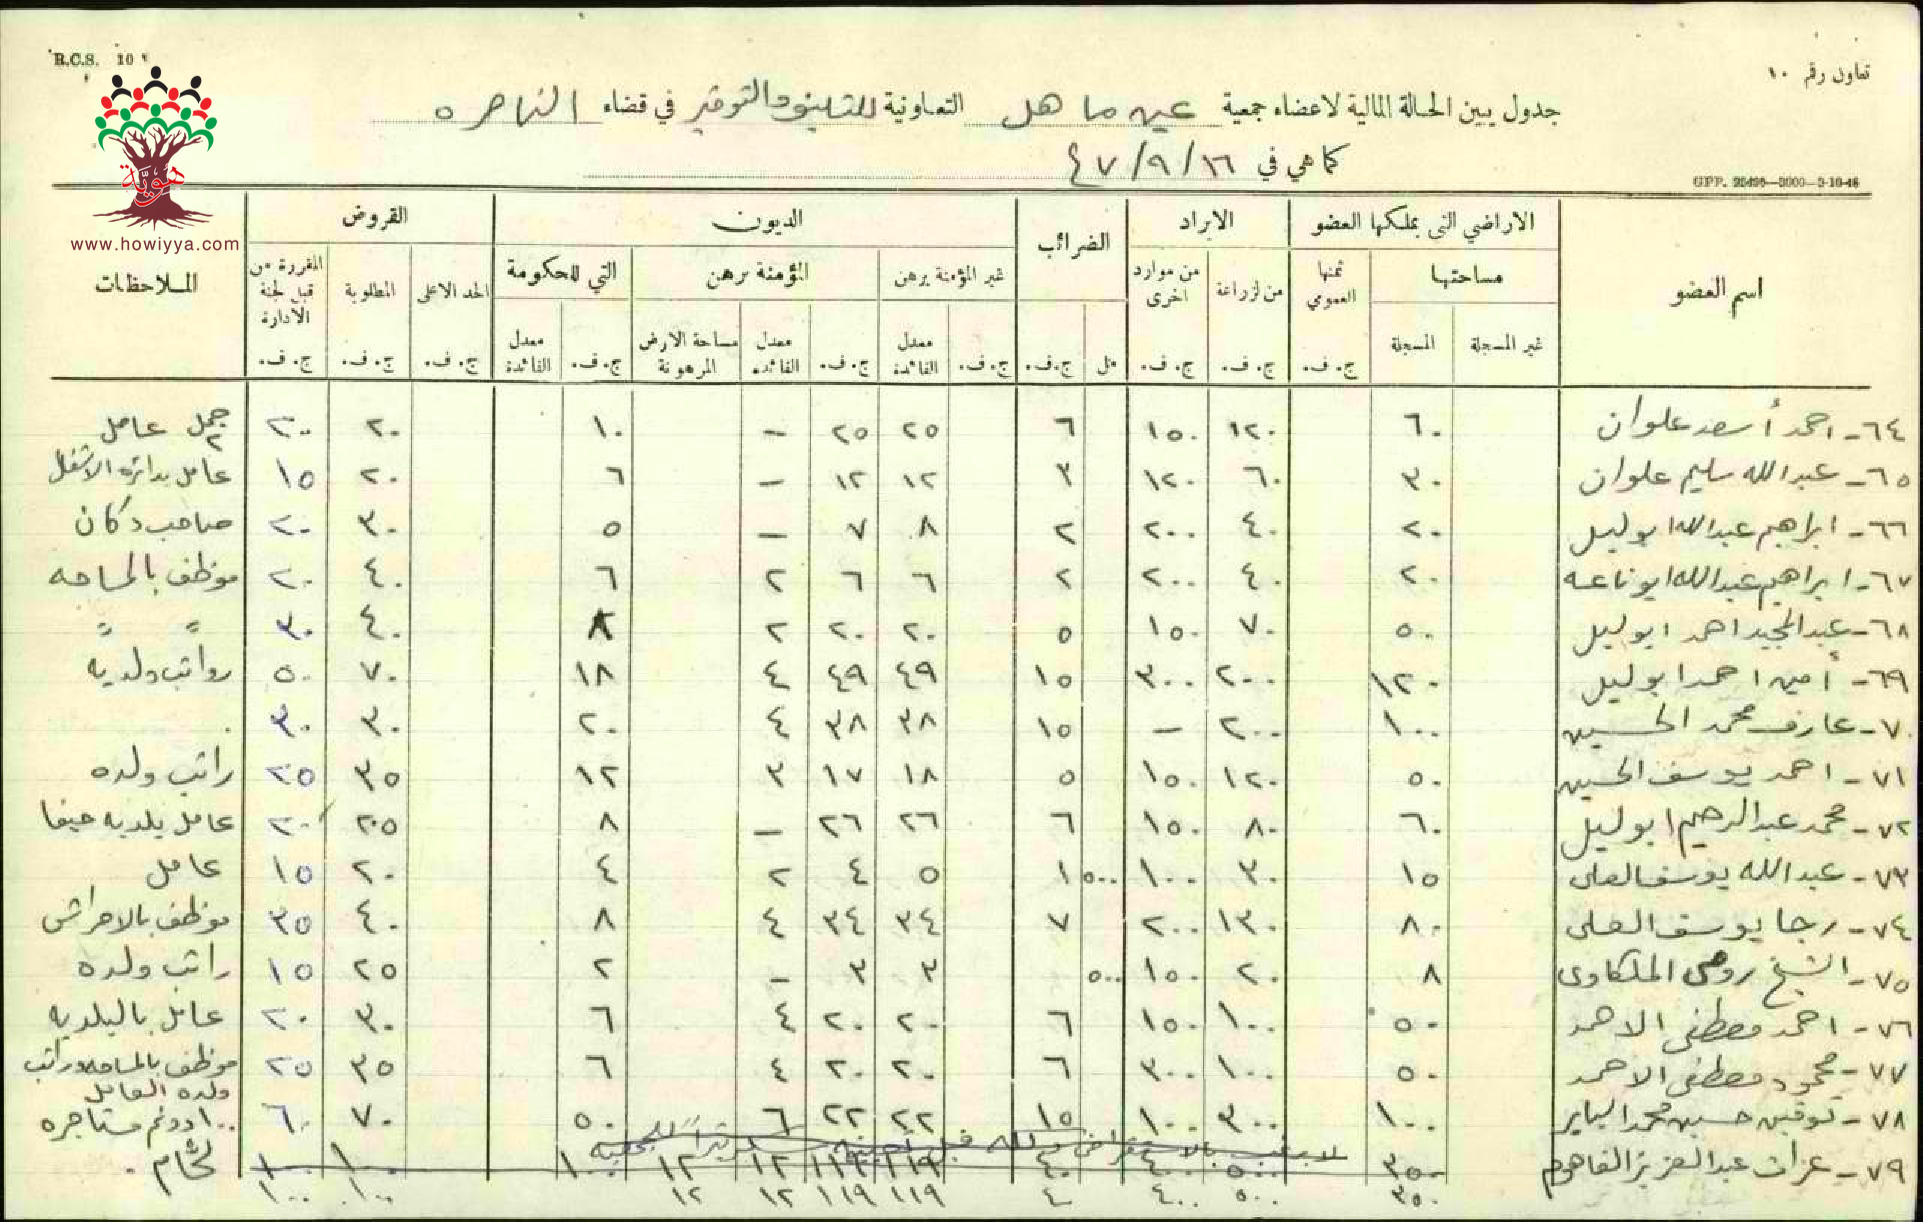 R.C.S. 10
تعاون رقم ١٠
جدول يبين الحالة المالية لاعضاء جمعية عين ماهل التعاونية للتسليف والتوفير في قضاء الناصره
كما هي في ١٦/٩/٤٧
GPP. 25495—3000—3-10-46
هويّة
www.howiyya.com
اسم العضو | الاراضي التى يملكها العضو | الايراد | الضرائب | الديون | القروض | الملاحظات
مساحتها | ثمنها العمومي | من لزراعة | من موارد اخرى | غير المؤمنة برهن | المؤمنة برهن | التي للحكومة | الحد الاعلى | المطلوبة | المقررة من قبل لجنة الادارة
غير المسجلة | المسجلة | ج. ف. | ج. ف. | ج. ف. | مل | ج. ف. | ج. ف. | معدل الفائدة | ج. ف. | معدل الفائدة | مساحة الارض المرهونة | ج. ف. | معدل الفائدة | ج. ف. | ج. ف. | ج. ف.
٦٤- احمد أسعد علوان ٦٠ ١٢٠ ١٥٠ ٦ ٢٥ ٢٥ - ١٠ ٢٠ ٢٠ جمل عامل
٦٥- عبدالله سليم علوان ٣٠ ٦٠ ١٢٠ ٣ ١٢ ١٢ - ٦ ٢٠ ١٥ عامل بدائرة الاشغال
٦٦- ابراهيم عبدالله ابو ليل ٢٠ ٤٠ ٢٠٠ ٢ ٨ ٧ - ٥ ٣٠ ٢٠ صاحب دكان
٦٧- ابراهيم عبدالله ابو ناعسه ٢٠ ٤٠ ٢٠٠ ٢ ٦ ٦ ٢ ٦ ٤٠ ٢٠ موظف بالمساحه
٦٨- عبدالمجيد احمد ابو ليل ٥٠ ٧٠ ١٥٠ ٥ ٢٠ ٢٠ ٢ ٨ ٤٠ ٣٠ " "
٦٩- أمين احمد ابو ليل ١٢٠ ٢٠٠ ٣٠٠ ١٥ ٤٩ ٤٩ ٤ ١٨ ٧٠ ٥٠ رواتب ولديه
٧٠- عارف محمد الحسين ١٠٠ ٢٠٠ - ١٥ ٣٨ ٣٨ ٤ ٢٠ ٣٠ ٣٠
٧١- احمد يوسف الحسين ٥٠ ١٢٠ ١٥٠ ٥ ١٨ ١٧ ٣ ١٢ ٣٥ ٢٥ راتب ولده
٧٢- محمد عبدالرحيم ابو ليل ٦٠ ٨٠ ١٥٠ ٦ ٢٦ ٢٦ - ٨ ٢٠ عامل ببلديه حيفا
٧٣- عبدالله يوسف العلى ١٥ ٣٠ ١٠٠ ٥٠٠ ١ ٥ ٤ ٢ ٤ ٢٠ ١٥ عامل
٧٤- رجا يوسف العلى ٨٠ ١٣٠ ٢٠٠ ٧ ٣٤ ٣٤ ٤ ٨ ٤٠ ٣٥ موظف بالاحراش
٧٥- الشيخ روحى الملكاوى ٨ ٢٠ ١٥٠ ٥٠٠ ٣ ٣ - ٢ ٢٥ ١٥ راتب ولده
٧٦- احمد مصطفى الاحمد ٥٠ ١٠٠ ١٥٠ ٦ ٢٠ ٢٠ ٤ ٦ ٣٠ ٢٠ عامل بالبلديه
٧٧- محمود مصطفى الاحمد ٥٠ ١٠٠ ٣٠٠ ٦ ٢٠ ٢٠ ٤ ٦ ٣٥ ٢٥ موظف بالمساحه وراتب ولده العامل
٧٨- توفيق حسين محمد ١٠٠ ٣٠٠ ١٠٠ ١٥ ٢٢ ٢٢ ٦ ٥٠ ٧٠ ٦٠ ١٠٠ دونم مستاجره
٧٩- عزات عبدالعزيز الفاهوم ٣٥٠ ٥٠٠ ٤٠٠ ٤٠ ١١٩ ١١٩ ١٢ ١٢ ١٠٠ ١٠٠ ١٠٠
٣٥٠ ٥٠٠ ٤٠٠ ٤٠ ١١٩ ١١٩ ١٢ ١٢ ١٠٠ ١٠٠